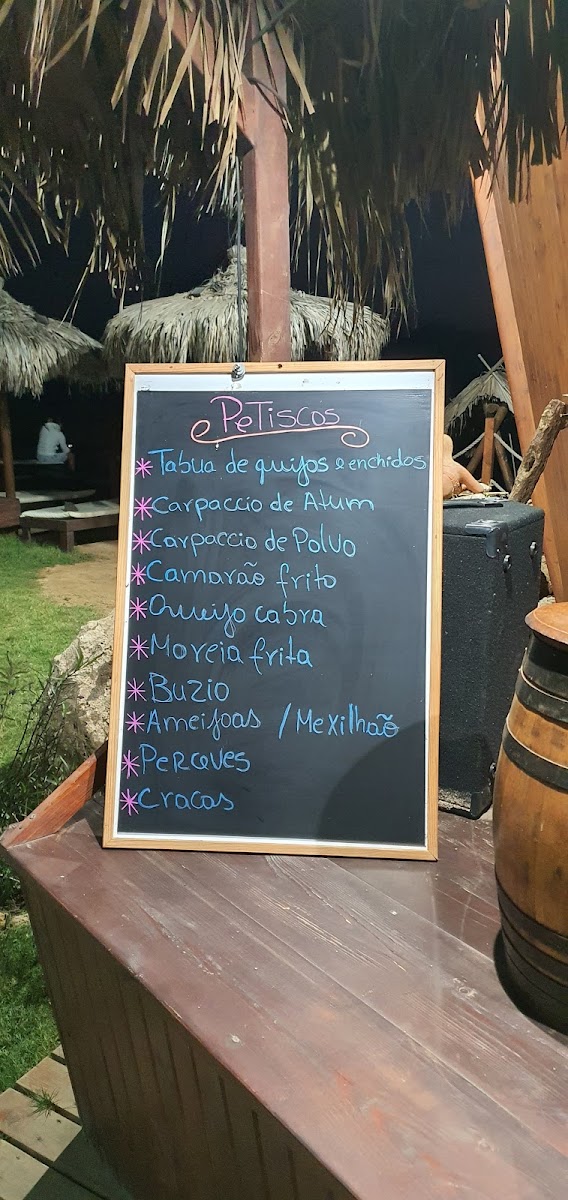 Petiscos
* Tabua de quijos e enchidos
* Carpaccio de Atum
* Carpaccio de Polvo
* Camarão frito
* Queijo cabra
* Moreia frita
* Buzio
* Ameijoas / Mexilhaõ
* Perceves
* Cracas